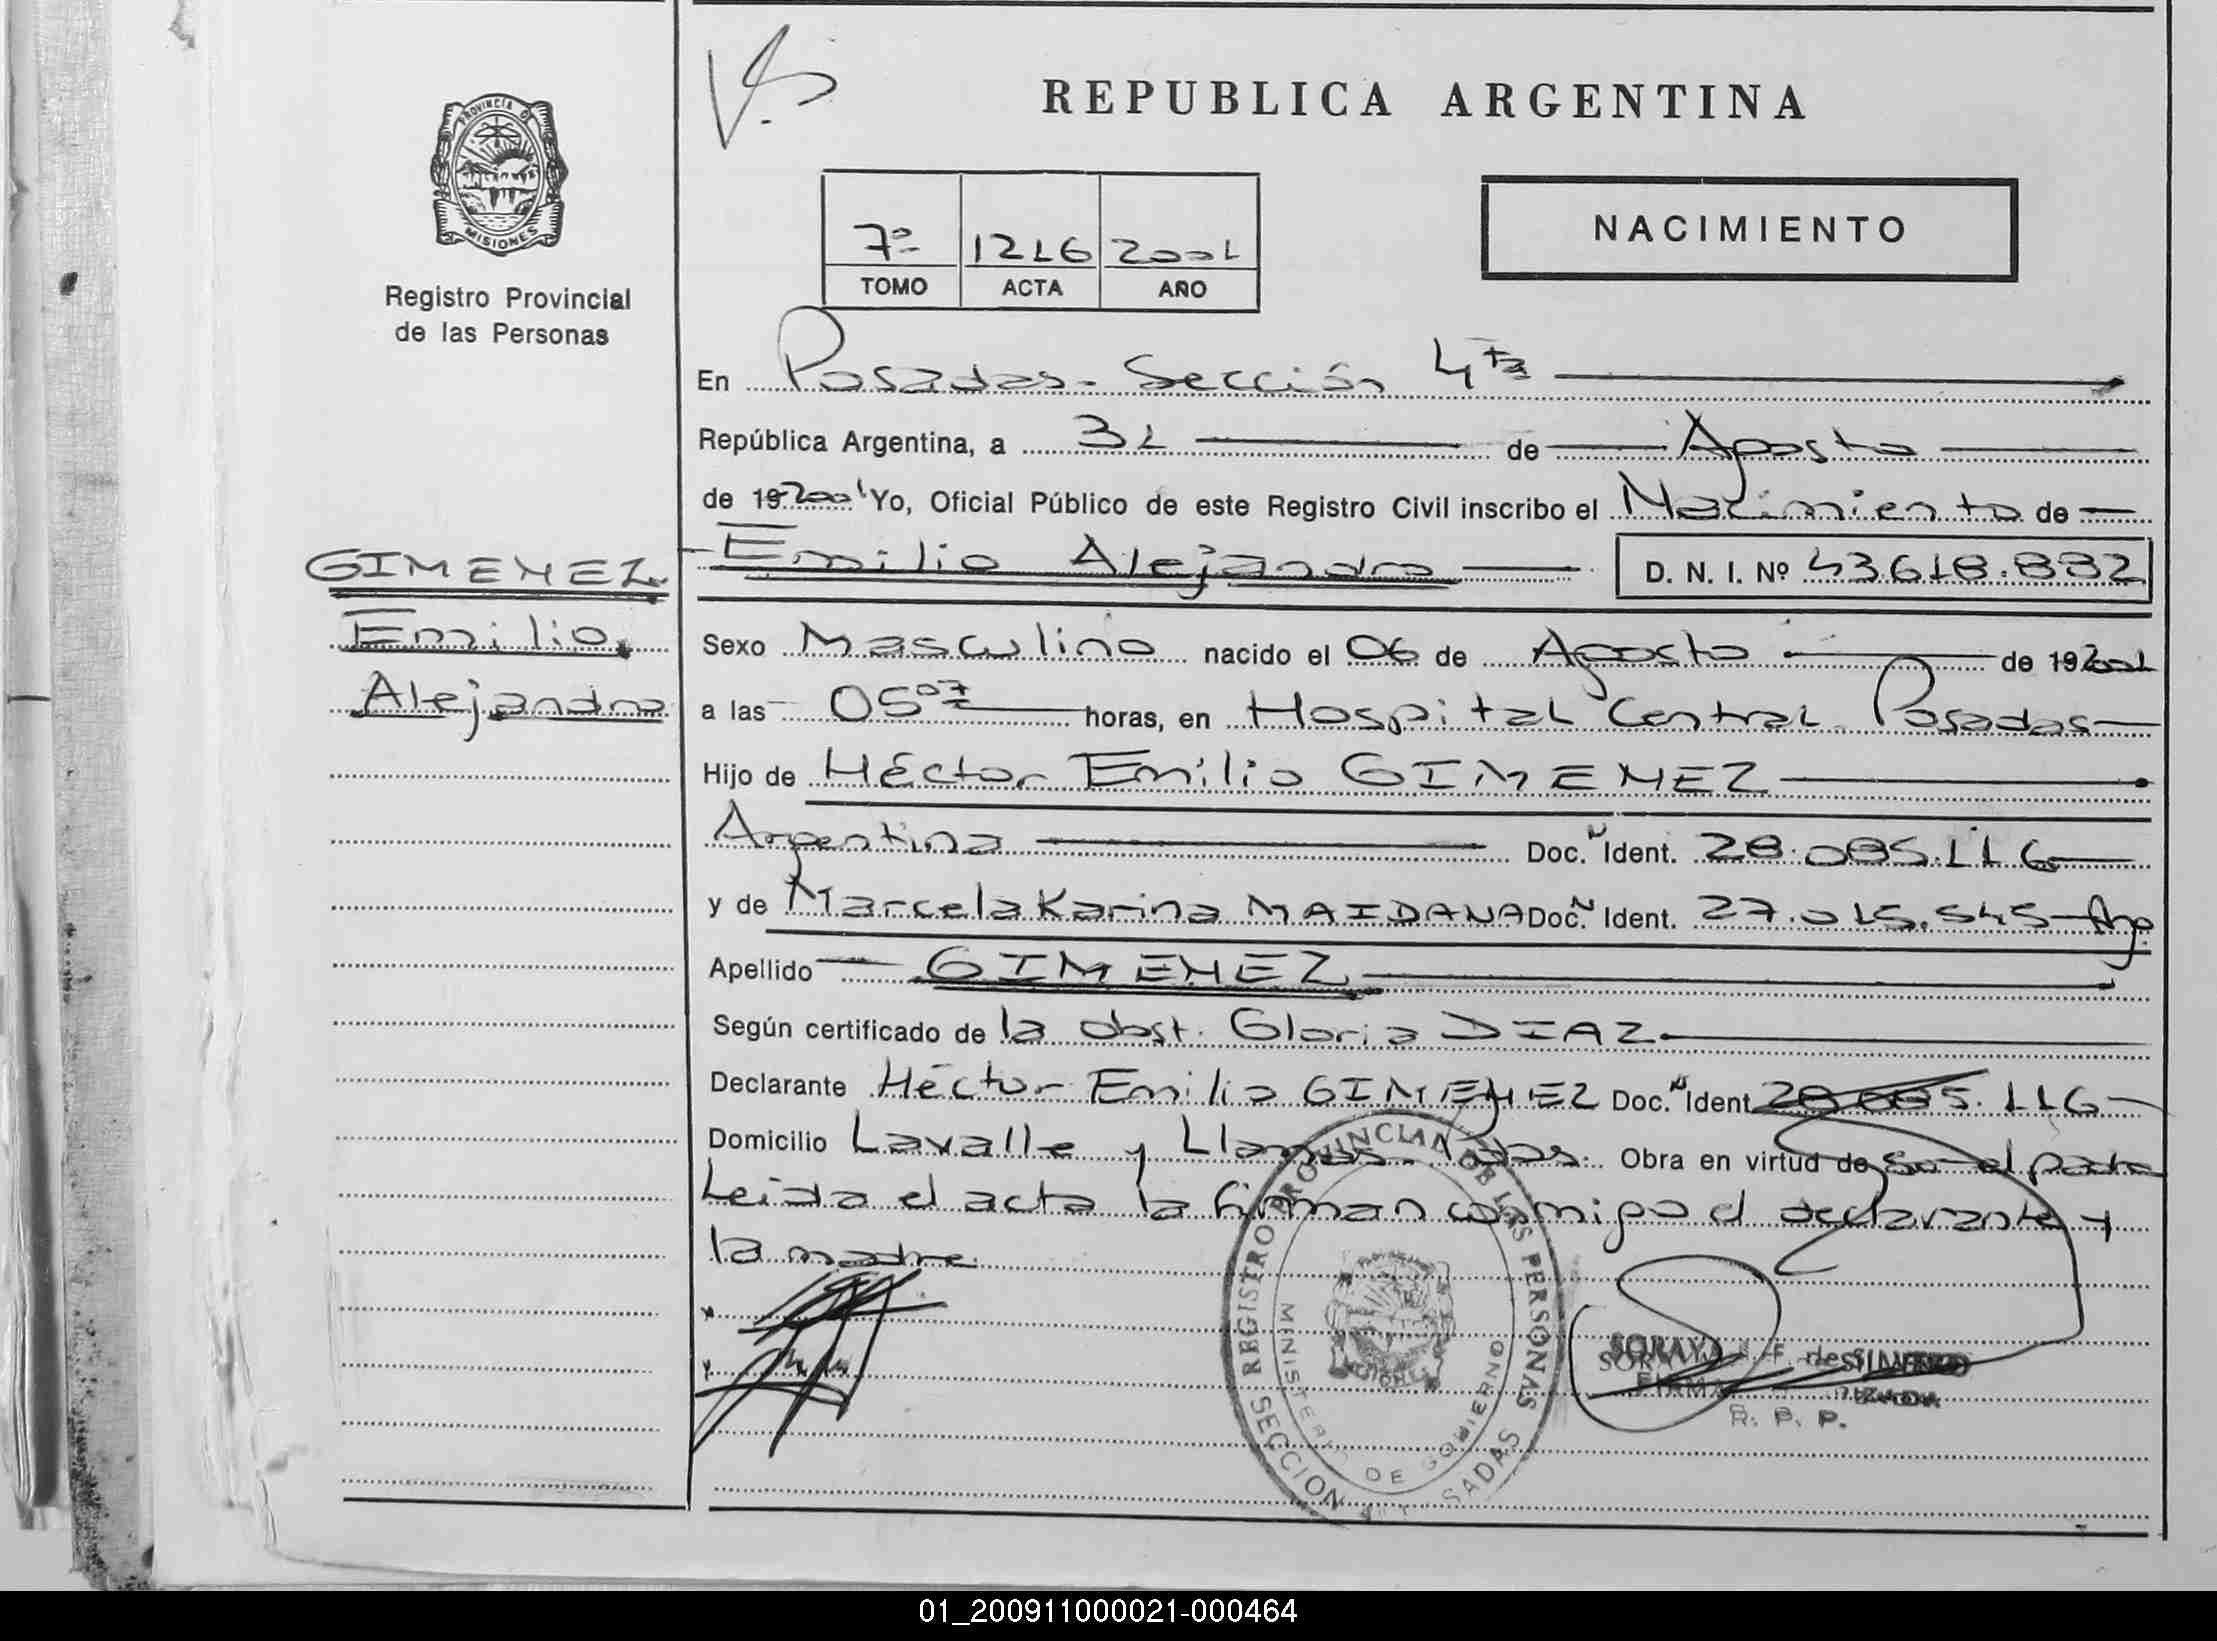 PROVINCIA DE
MISIONES
Registro Provincial
de las Personas
GIMENEZ
Emilio
Alejandro
REPUBLICA ARGENTINA
7º 1216 2001
TOMO ACTA AÑO
NACIMIENTO
En Posadas - Sección 4ta
República Argentina, a 31 de Agosto
de 19 2001 Yo, Oficial Público de este Registro Civil inscribo el Nacimiento de
Emilio Alejandro D. N. I. Nº 43.618.882
Sexo Masculino nacido el 06 de Agosto de 19 2001
a las 05 07 horas, en Hospital Central Posadas
Hijo de Héctor Emilio GIMENEZ
Argentina Doc. N Ident. 28.085.116
y de Marcela Karina MAIDANA Doc. N Ident. 27.015.545 Arg.
Apellido GIMENEZ
Según certificado de la obst. Gloria DIAZ
Declarante Héctor Emilio GIMENEZ Doc. N Ident 28.085.116
Domicilio Lavalle y Llamas. Pdas. Obra en virtud de ser el padre
Leida el acta la firman conmigo el declarante y
la madre.
REGISTRO PROVINCIAL DE LAS PERSONAS
MINISTERIO DE GOBIERNO
SECCION
SORAYA de
FIRMA
R. P. P.
01_200911000021-000464